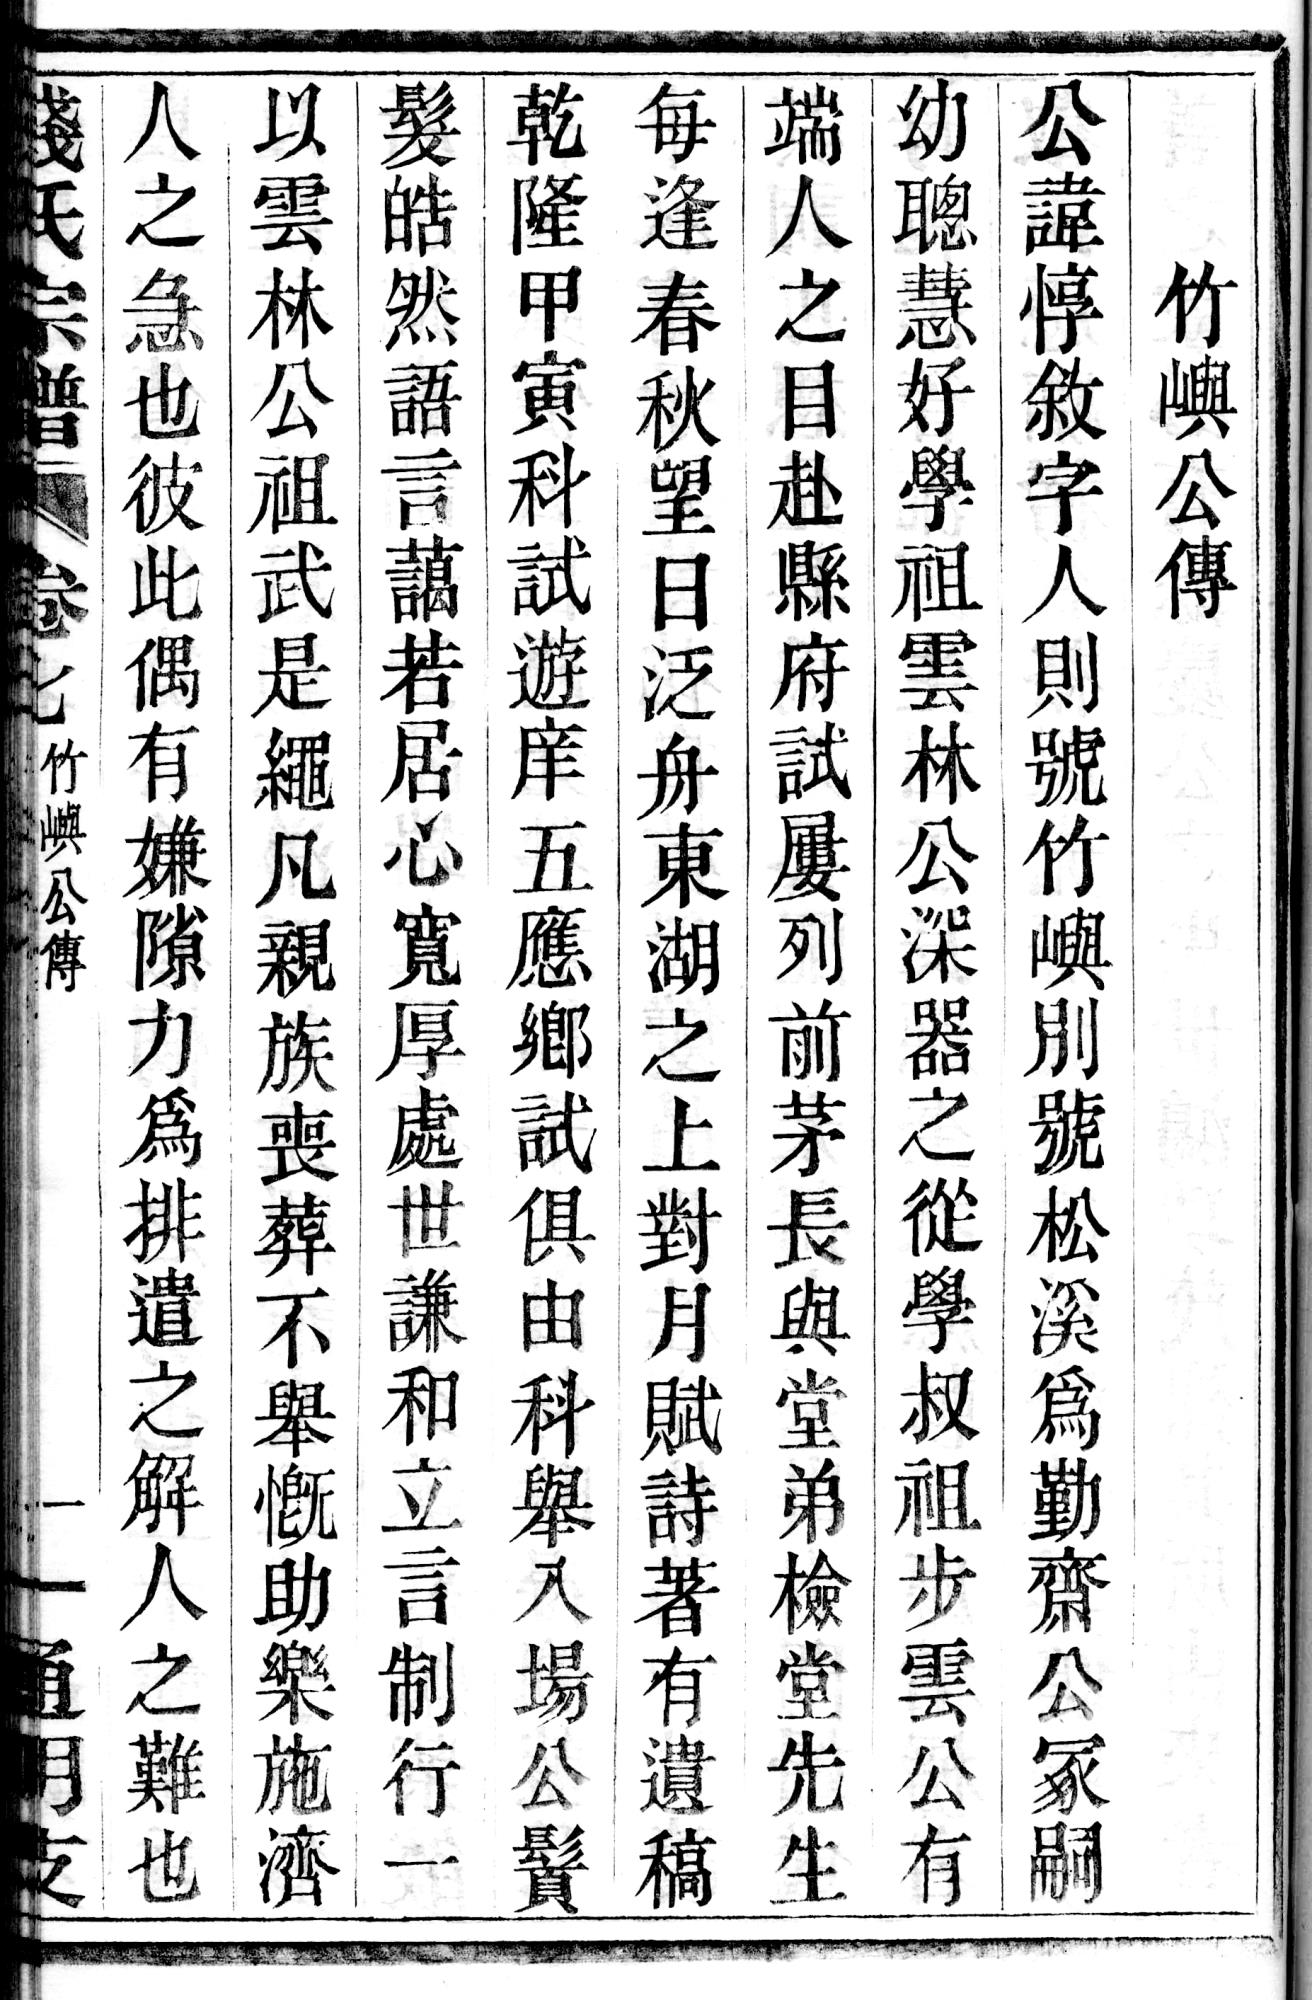 竹嶼公傳
公諱惇敘字人則號竹嶼別號松溪爲勤齋公冢嗣
幼聰慧好學祖雲林公深器之從學叔祖步雲公有
端人之目赴縣府試屢列前茅長與堂弟檢堂先生
每逢春秋望日泛舟東湖之上對月賦詩著有遺稿
乾隆甲寅科試遊庠五應鄉試俱由科舉入場公鬢
髮皓然語言藹若居心寬厚處世謙和立言制行一
以雲林公祖武是繩凡親族喪葬不舉慨助樂施濟
人之急也彼此偶有嫌隙力爲排遣之解人之難也
錢氏宗譜 卷七 竹嶼公傳 一 通明支